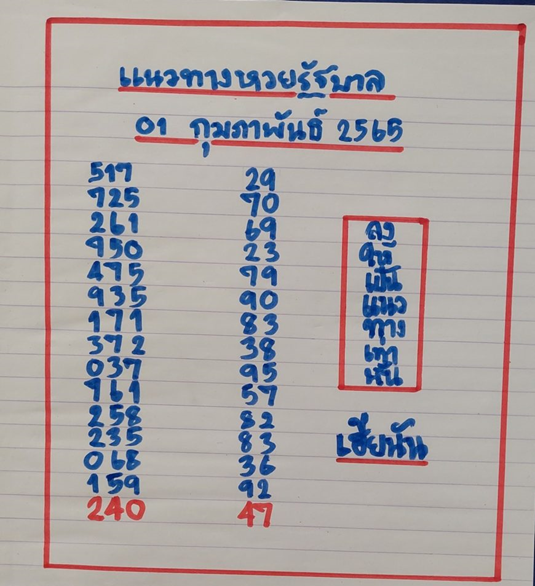 แนวทางหวยรัฐบาล
01 กุมภาพันธ์ 2565
517 29
725 70
261 69
950 23
475 79
935 90
171 83
372 38
037 95
961 57
258 82
235 83
068 36
159 92
240 47
ลง
ให้
เป็น
แนว
ทาง
เท่า
นั้น
เฮียนัน